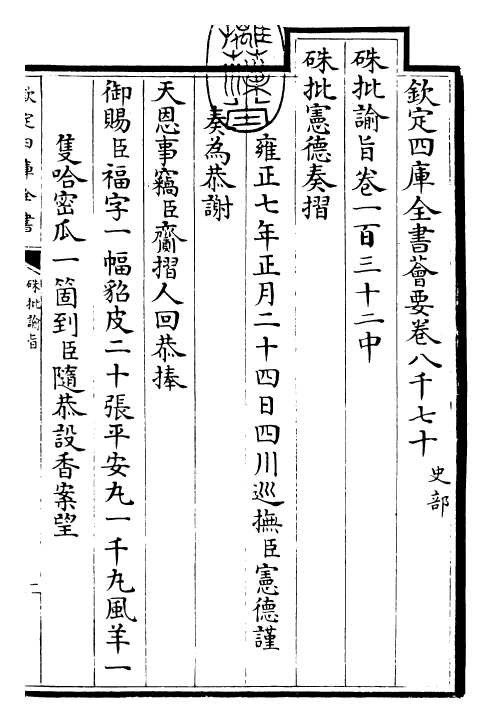 欽定四庫全書薈要卷八千七十 史部
硃批諭旨卷一百三十二中
硃批憲德奏摺
雍正七年正月二十四日四川巡撫臣憲德謹
奏為恭謝
天恩事竊臣齎摺人回恭捧
御賜臣福字一幅貂皮二十張平安丸一千丸風羊一
隻哈密瓜一箇到臣隨恭設香案望
欽定四庫全書
硃批諭旨
一